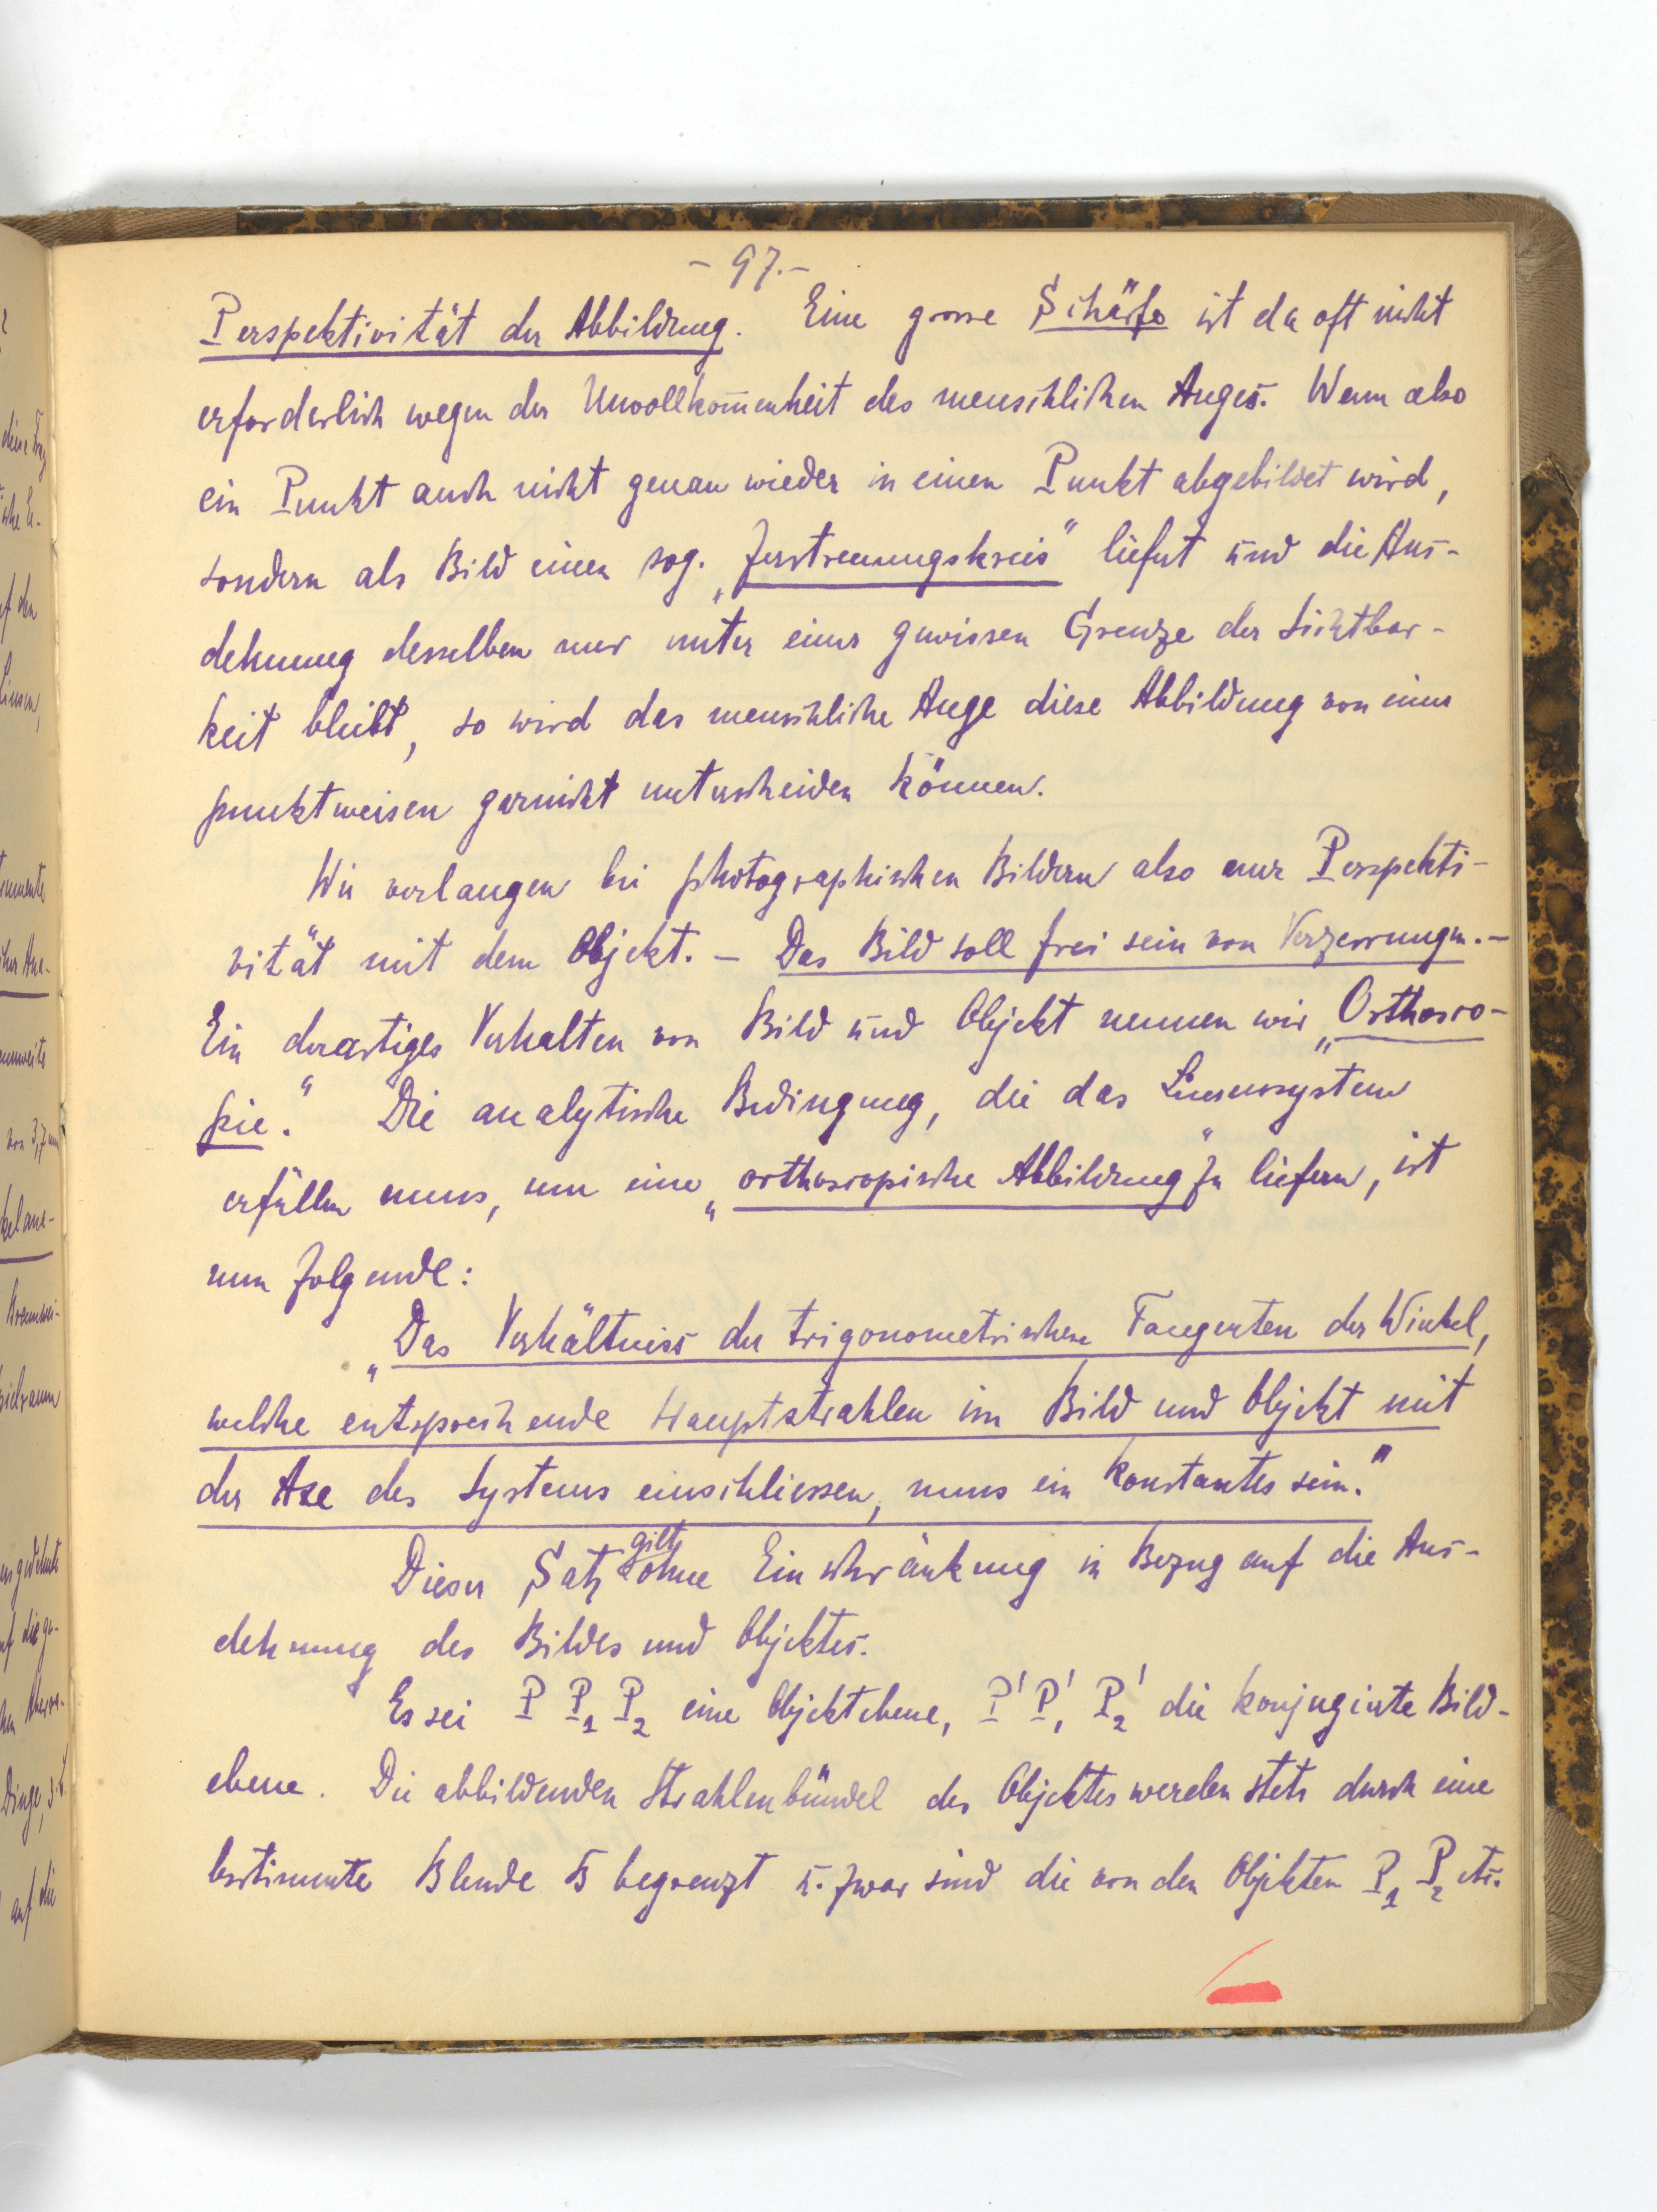 - 97. -
Perspektivität der Abbildung. Eine grosse Schärfe ist da oft nicht
erforderlich wegen der Unvollkom̅enheit des menschlichen Auges. Wenn also
ein Punkt auch nicht genau wieder in einen Punkt abgebildet wird,
sondern als Bild einen sog. „Zerstreuungskreis" liefert und die Aus-
dehnung desselben nur unter einer gewissen Grenze der Sichtbar-
keit bleibt, so wird das menschliche Auge diese Abbildung von einer
punktweisen garnicht unterscheiden können.
Wir verlangen bei photographischen Bildern also nur Perspekti-
vität mit dem Objekt. - Das Bild soll frei sein von Verzerrungen. -
Ein derartiges Verhalten von Bild und Objekt nennen wir „Orthosco-
pie." Die analytische Bedingung, die das Linsensystem
erfüllen muss, um eine „orthoscopische Abbildung" zu liefern, ist
nun folgende:
„Das Verhältniss der trigonometrischen Tangenten der Winkel,
welche entsprechende Hauptstrahlen im Bild und Objekt mit
der Axe des Systems einschliessen, muss ein konstantes sein."
Dieser Satz gilt ohne Einschränkung in Bezug auf die Aus-
dehnung des Bildes und Objektes.
Es sei P P₁ P₂ eine Objektebene, P' P₁' P₂' die konjugierte Bild-
ebene. Die abbildenden Strahlenbündel des Objektes werden stets durch eine
bestimmte Blende B begrenzt u. zwar sind die von den Objekten P₁ P₂ etc.